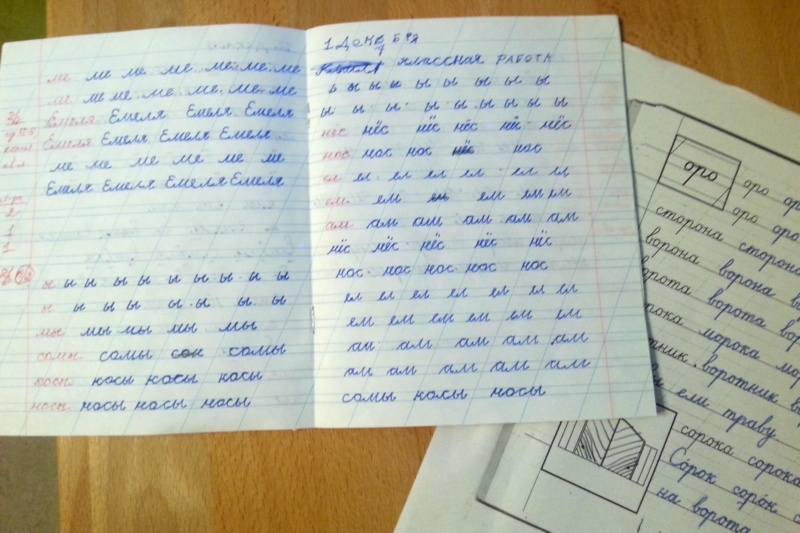 ме ме ме ме ме ме ме
ме ме ме ме ме ме ме
Емеля Емеля Емеля Емеля
Емеля Емеля Емеля Емеля
ме ме ме ме ме ме
Емеля Емеля Емеля Емеля
2
1
1
ы ы ы ы ы ы ы ы ы ы
ы ы ы ы ы ы ы ы
мы мы мы мы мы
сомы сомы сомы
косы косы косы косы
носы носы носы носы
1 ДЕКАБРЯ
КЛАССНАЯ РАБОТА
ы ы ы ы ы ы ы ы
ы ы ы ы ы ы ы ы
нёс нёс нёс нёс нёс нёс
нос нос нос нос
ел ел ел ел ел ел
ем ем ем ем ем
ам ам ам ам ам ам
нёс нёс нёс нёс нёс
нос нос нос нос нос
ел ел ел ел ел ел
ем ем ем ем ем ем
ам ам ам ам ам
ам ам ам ам ам ам
сомы косы носы
оро оро
оро оро
сторона сторона
ворона ворона
ворота ворота
морока
воротник
ели траву
сорока сорока
Сорок сорок
на ворота